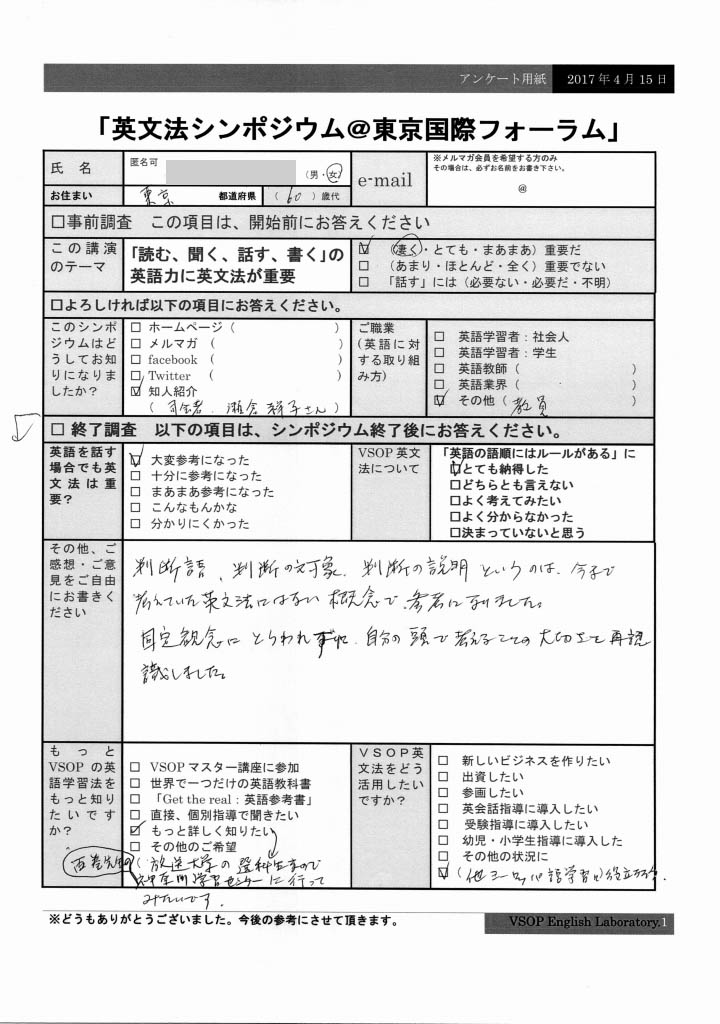 アンケート用紙 2017年4月15日
「英文法シンポジウム＠東京国際フォーラム」
氏 名 匿名可 （男・女） e-mail ※メルマガ会員を希望する方のみ
その場合は、必ずお名前をお書き下さい。
@
お住まい 東京 都道府県 （60）歳代
□事前調査 この項目は、開始前にお答えください
この講演のテーマ
「読む、聞く、話す、書く」の
英語力に英文法が重要
☑（凄く・とても・まあまあ）重要だ
□（あまり・ほとんど・全く）重要でない
□「話す」には（必要ない・必要だ・不明）
□よろしければ以下の項目にお答えください。
このシンポ
ジウムはど
うしてお知
りになりま
したか？
□ ホームページ（ ）
□ メルマガ （ ）
□ facebook （ ）
□ Twitter （ ）
☑ 知人紹介
（司会者、 さん）
ご職業
(英語に対
する取り組
み方)
□ 英語学習者：社会人
□ 英語学習者：学生
□ 英語教師（ ）
□ 英語業界（ ）
☑ その他（教員 ）
□ 終了調査 以下の項目は、シンポジウム終了後にお答えください。
英語を話す
場合でも英
文法は重
要？
☑ 大変参考になった
□ 十分に参考になった
□ まあまあ参考になった
□ こんなもんかな
□ 分かりにくかった
VSOP英文
法について
「英語の語順にはルールがある」に
☑とても納得した
□どちらとも言えない
□よく考えてみたい
□よく分からなかった
□決まっていないと思う
その他、ご
感想・ご意
見をご自由
にお書きく
ださい
判断語、判断の対象、判断の説明というのは、今まで
考えていた英文法にはない概念で、参考になりました。
固定観念にとらわれずに、自分の頭で考えることの大切さを再認
識しました。
もっと
VSOPの英
語学習法を
もっと知り
たいです
か？
□ VSOPマスター講座に参加
□ 世界で一つだけの英語教科書
□ 「Get the real：英語参考書」
□ 直接、個別指導で聞きたい
☑ もっと詳しく知りたい
□ その他のご希望
（放送大学の選科生なので
学習センターに行って
みたいです。
VSOP英
文法をどう
活用したい
ですか？
□ 新しいビジネスを作りたい
□ 出資したい
□ 参画したい
□ 英会話指導に導入したい
□ 受験指導に導入したい
□ 幼児・小学生指導に導入した
□ その他の状況に
☑（他 語学習に役立
※どうもありがとうございました。今後の参考にさせて頂きます。
VSOP English Laboratory.1